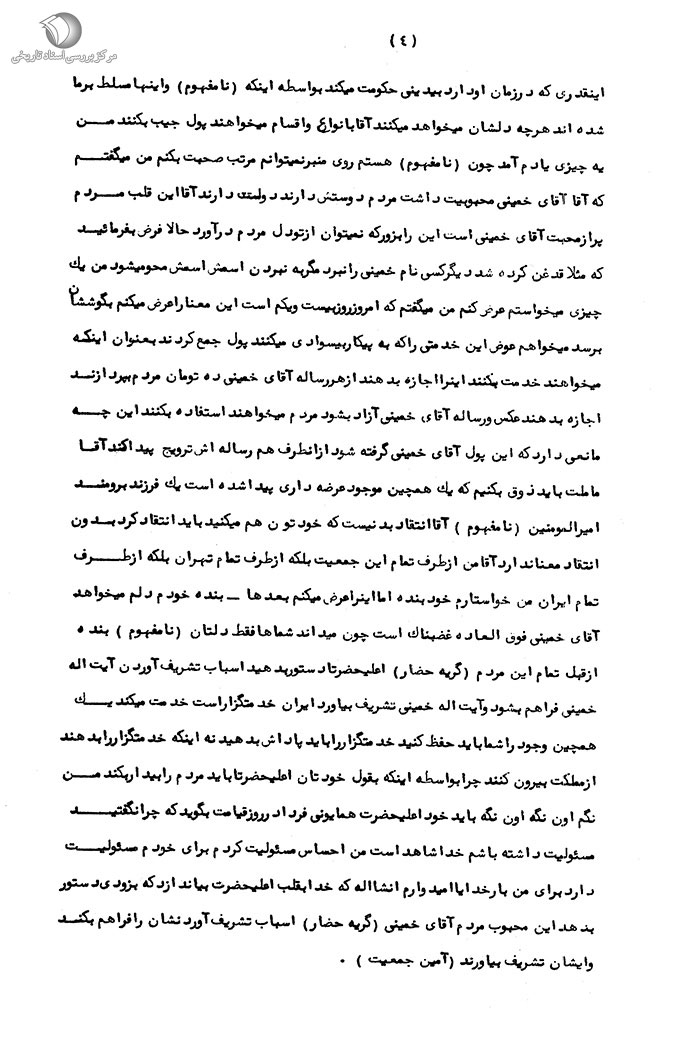 مرکز بررسی اسناد تاریخی
(٤)
اینقدری که در زمان او دارد بیدینی حکومت میکند بواسطه اینکه (نامفهوم) واینها مسلط برما
شده اند هرچه دلشان میخواهد میکنند آقا بانواع واقسام میخواهند پول جیب بکنند من
یه چیزی یادم آمد چون (نامفهوم) هستم روی منبر نمیتوانم مرتب صحبت بکنم من میگفتم
که آقا آقای خمینی محبوبیت داشت مردم دوستش دارند دارند آقا این قلب مردم
پراز محبت آقای خمینی است این را بزور که نمیتوان ازتو دل مردم درآورد حالا فرض بفرمائید
که مثلا قدغن کرده شد دیگر کسی نام خمینی را نبرد مگر به نبردن اسمش اسمش محو میشود من یك
چیزی میخواستم عرض کنم من میگفتم که امروز روز بیست ویکم است این معنا را عرض میکنم بگوششان
برسد میخواهم عوض این خدمتی راکه به پیکار بیسوادی میکنند پول جمع کردند بعنوان اینکه
میخواهند خدمت بکنند اینرا اجازه بدهند ازهر رساله آقای خمینی ده تومان مردم بپردازند
اجازه بدهند عکس ورساله آقای خمینی آزاد بشود مردم میخواهند استفاده بکنند این چه
مانعی دارد که این پول آقای خمینی گرفته شود ازانطرف هم رساله اش ترویج پیدا کند آقا
ما ملت باید ذوق بکنیم که یك همچین موجود عرضه داری پیدا شده است یك فرزند برومند
امیرالمومنین (نامفهوم) آقا انتقاد بد نیست که خودتون هم میکنید باید انتقاد کرد بدون
انتقاد معنا ندارد آقا من ازطرف تمام این جمعیت بلکه ازطرف تمام تهران بلکه ازطرف
تمام ایران من خواستارم خود بنده اما اینرا عرض میکنم بعدها ـ بنده خودم دلم میخواهد
آقای خمینی فوق العاده غضبناك است چون میداند شماها فقط دلتان (نامفهوم) بنده
ازقبل تمام این مردم (گریه حضار) اعلیحضرتا دستور بدهید اسباب تشریف آوردن آیت اله
خمینی فراهم بشود وآیت اله خمینی تشریف بیاورد ایران خدمتگزار است خدمت میکند یك
همچین وجود را شما باید حفظ کنید خدمتگزار را باید پاداش بدهید نه اینکه خدمتگزار را بدهند
ازمملکت بیرون کنند چرا بواسطه اینکه بقول خودتان اعلیحضرتا باید مردم را بیدار بکند من
نگم اون نگه اون نگه باید خود اعلیحضرت همایونی فردا در روز قیامت بگوید که چرا نگفتید
مسئولیت داشته باشم خدا شاهد است من احساس مسئولیت کردم برای خودم مسئولیت
دارد برای من بارخدایا امیدوارم انشااله که خدا بقلب اعلیحضرت بیاندازد که بزودی دستور
بدهد این محبوب مردم آقای خمینی (گریه حضار) اسباب تشریف آوردنشان را فراهم بکند
وایشان تشریف بیاورند (آمین جمعیت) .